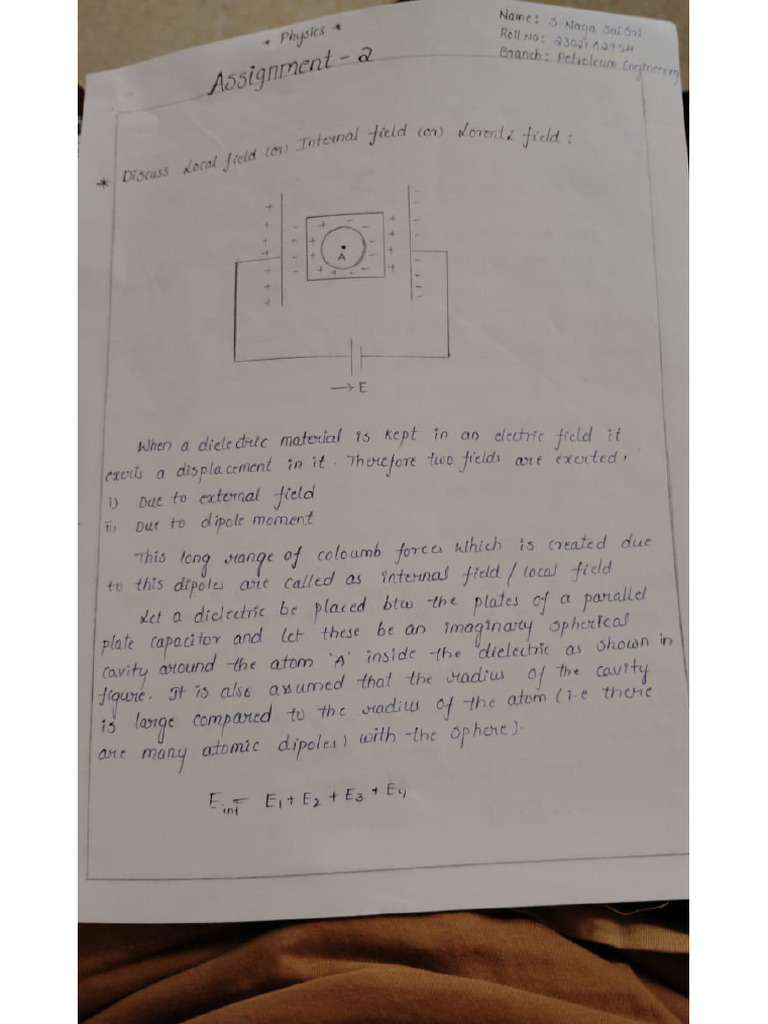 * Physics *
Name: S Naga Sai Sri
Roll No:
Assignment - 2
Branch: Petroleum Engineering
* Discuss Local field (or) Internal field (or) Lorentz field:
A
→ E
When a dielectric material is kept in an electric field it
exerts a displacement in it. Therefore two fields are exerted,
i) Due to external field
ii) Due to dipole moment
This long range of coloumb forces which is created due
to this dipoles are called as internal field / local field
Let a dielectric be placed btw the plates of a parallel
plate capacitor and let these be an imaginary spherical
cavity around the atom 'A' inside the dielectric as shown in
figure. It is also assumed that the radius of the cavity
is large compared to the radius of the atom (i.e there
are many atomic dipoles) with the sphere).
E_int = E1 + E2 + E3 + E4